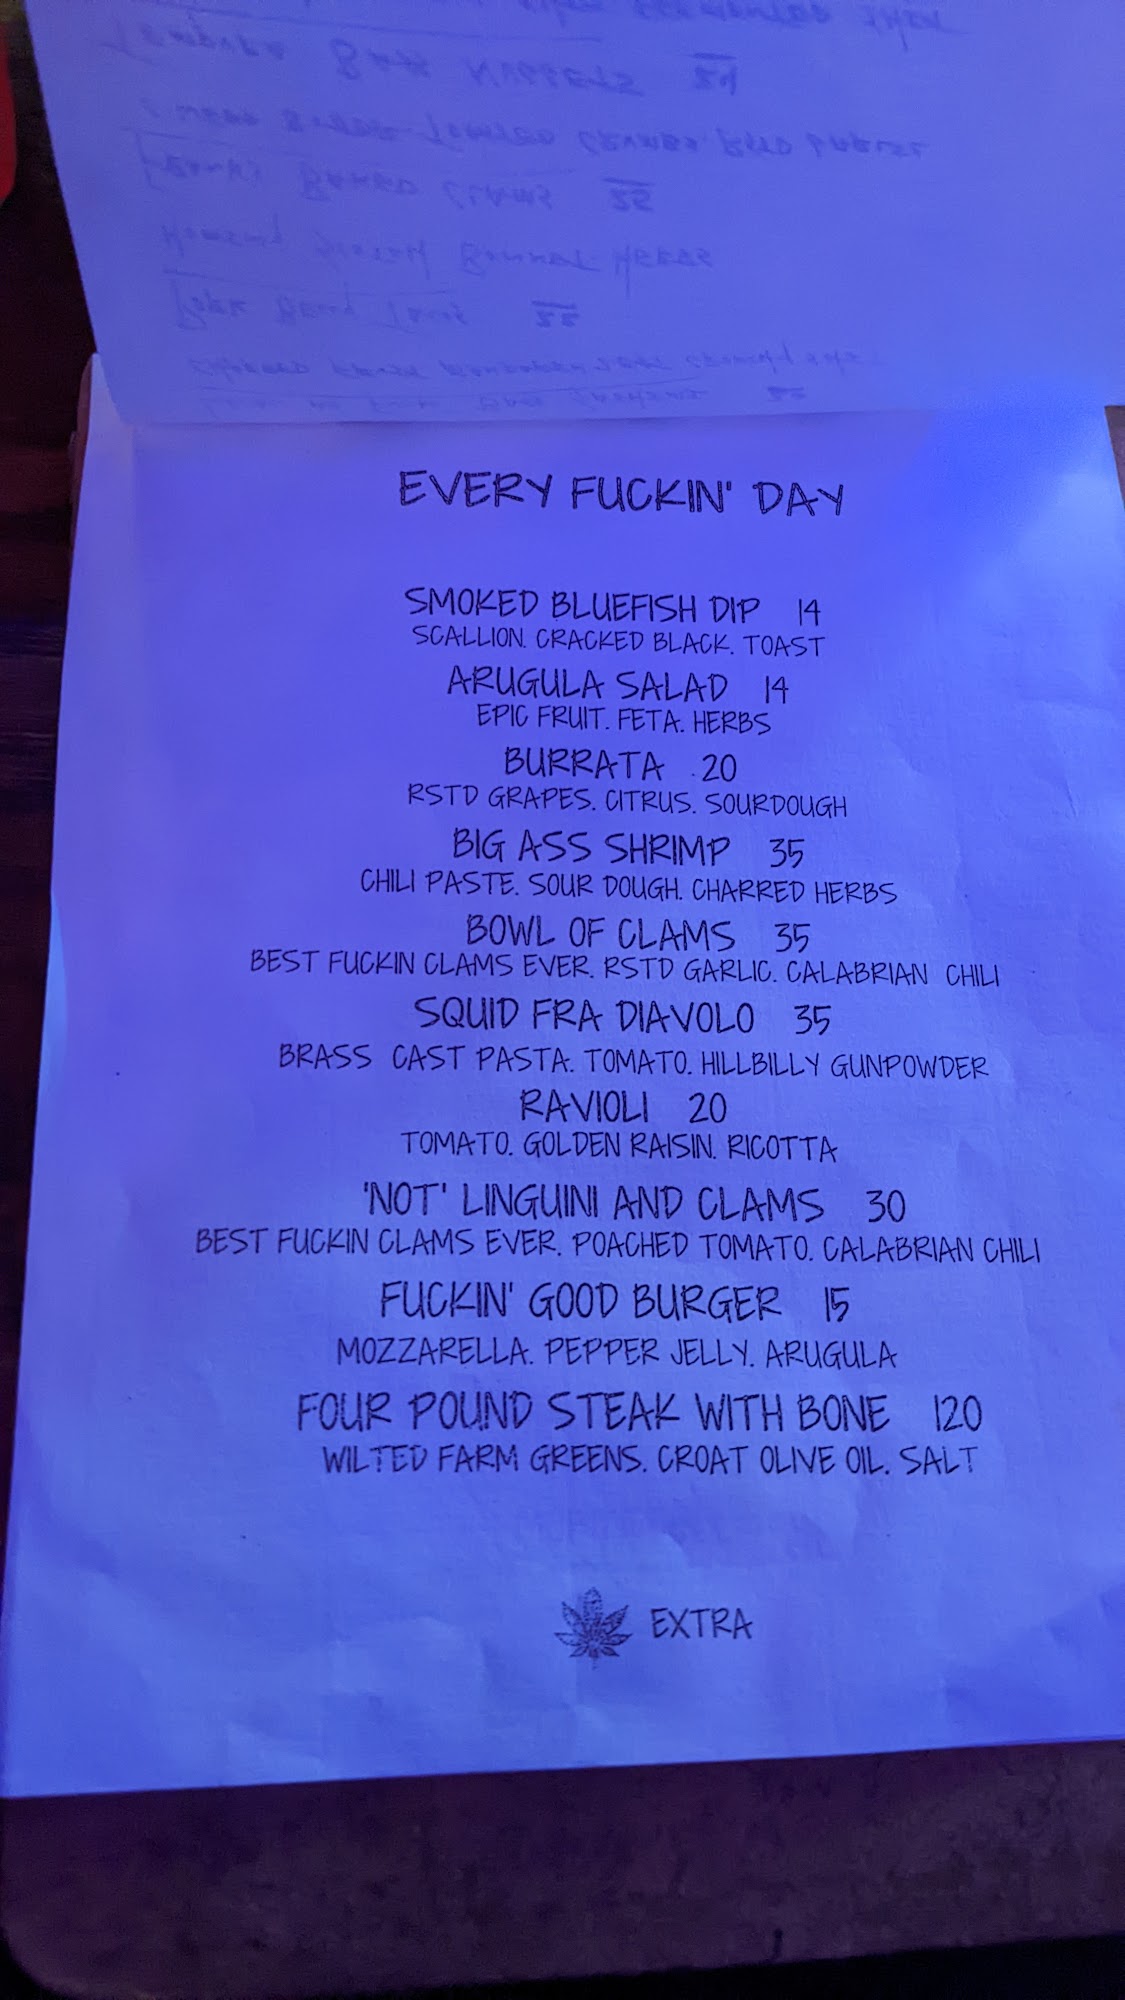 EVERY FUCKIN' DAY
SMOKED BLUEFISH DIP 14
SCALLION. CRACKED BLACK. TOAST
ARUGULA SALAD 14
EPIC FRUIT. FETA. HERBS
BURRATA 20
RSTD GRAPES. CITRUS. SOURDOUGH
BIG ASS SHRIMP 35
CHILI PASTE. SOUR DOUGH. CHARRED HERBS
BOWL OF CLAMS 35
BEST FUCKIN CLAMS EVER. RSTD GARLIC. CALABRIAN CHILI
SQUID FRA DIAVOLO 35
BRASS CAST PASTA. TOMATO. HILLBILLY GUNPOWDER
RAVIOLI 20
TOMATO. GOLDEN RAISIN. RICOTTA
'NOT' LINGUINI AND CLAMS 30
BEST FUCKIN CLAMS EVER. POACHED TOMATO. CALABRIAN CHILI
FUCKIN' GOOD BURGER 15
MOZZARELLA. PEPPER JELLY. ARUGULA
FOUR POUND STEAK WITH BONE 120
WILTED FARM GREENS. CROAT OLIVE OIL. SALT
EXTRA